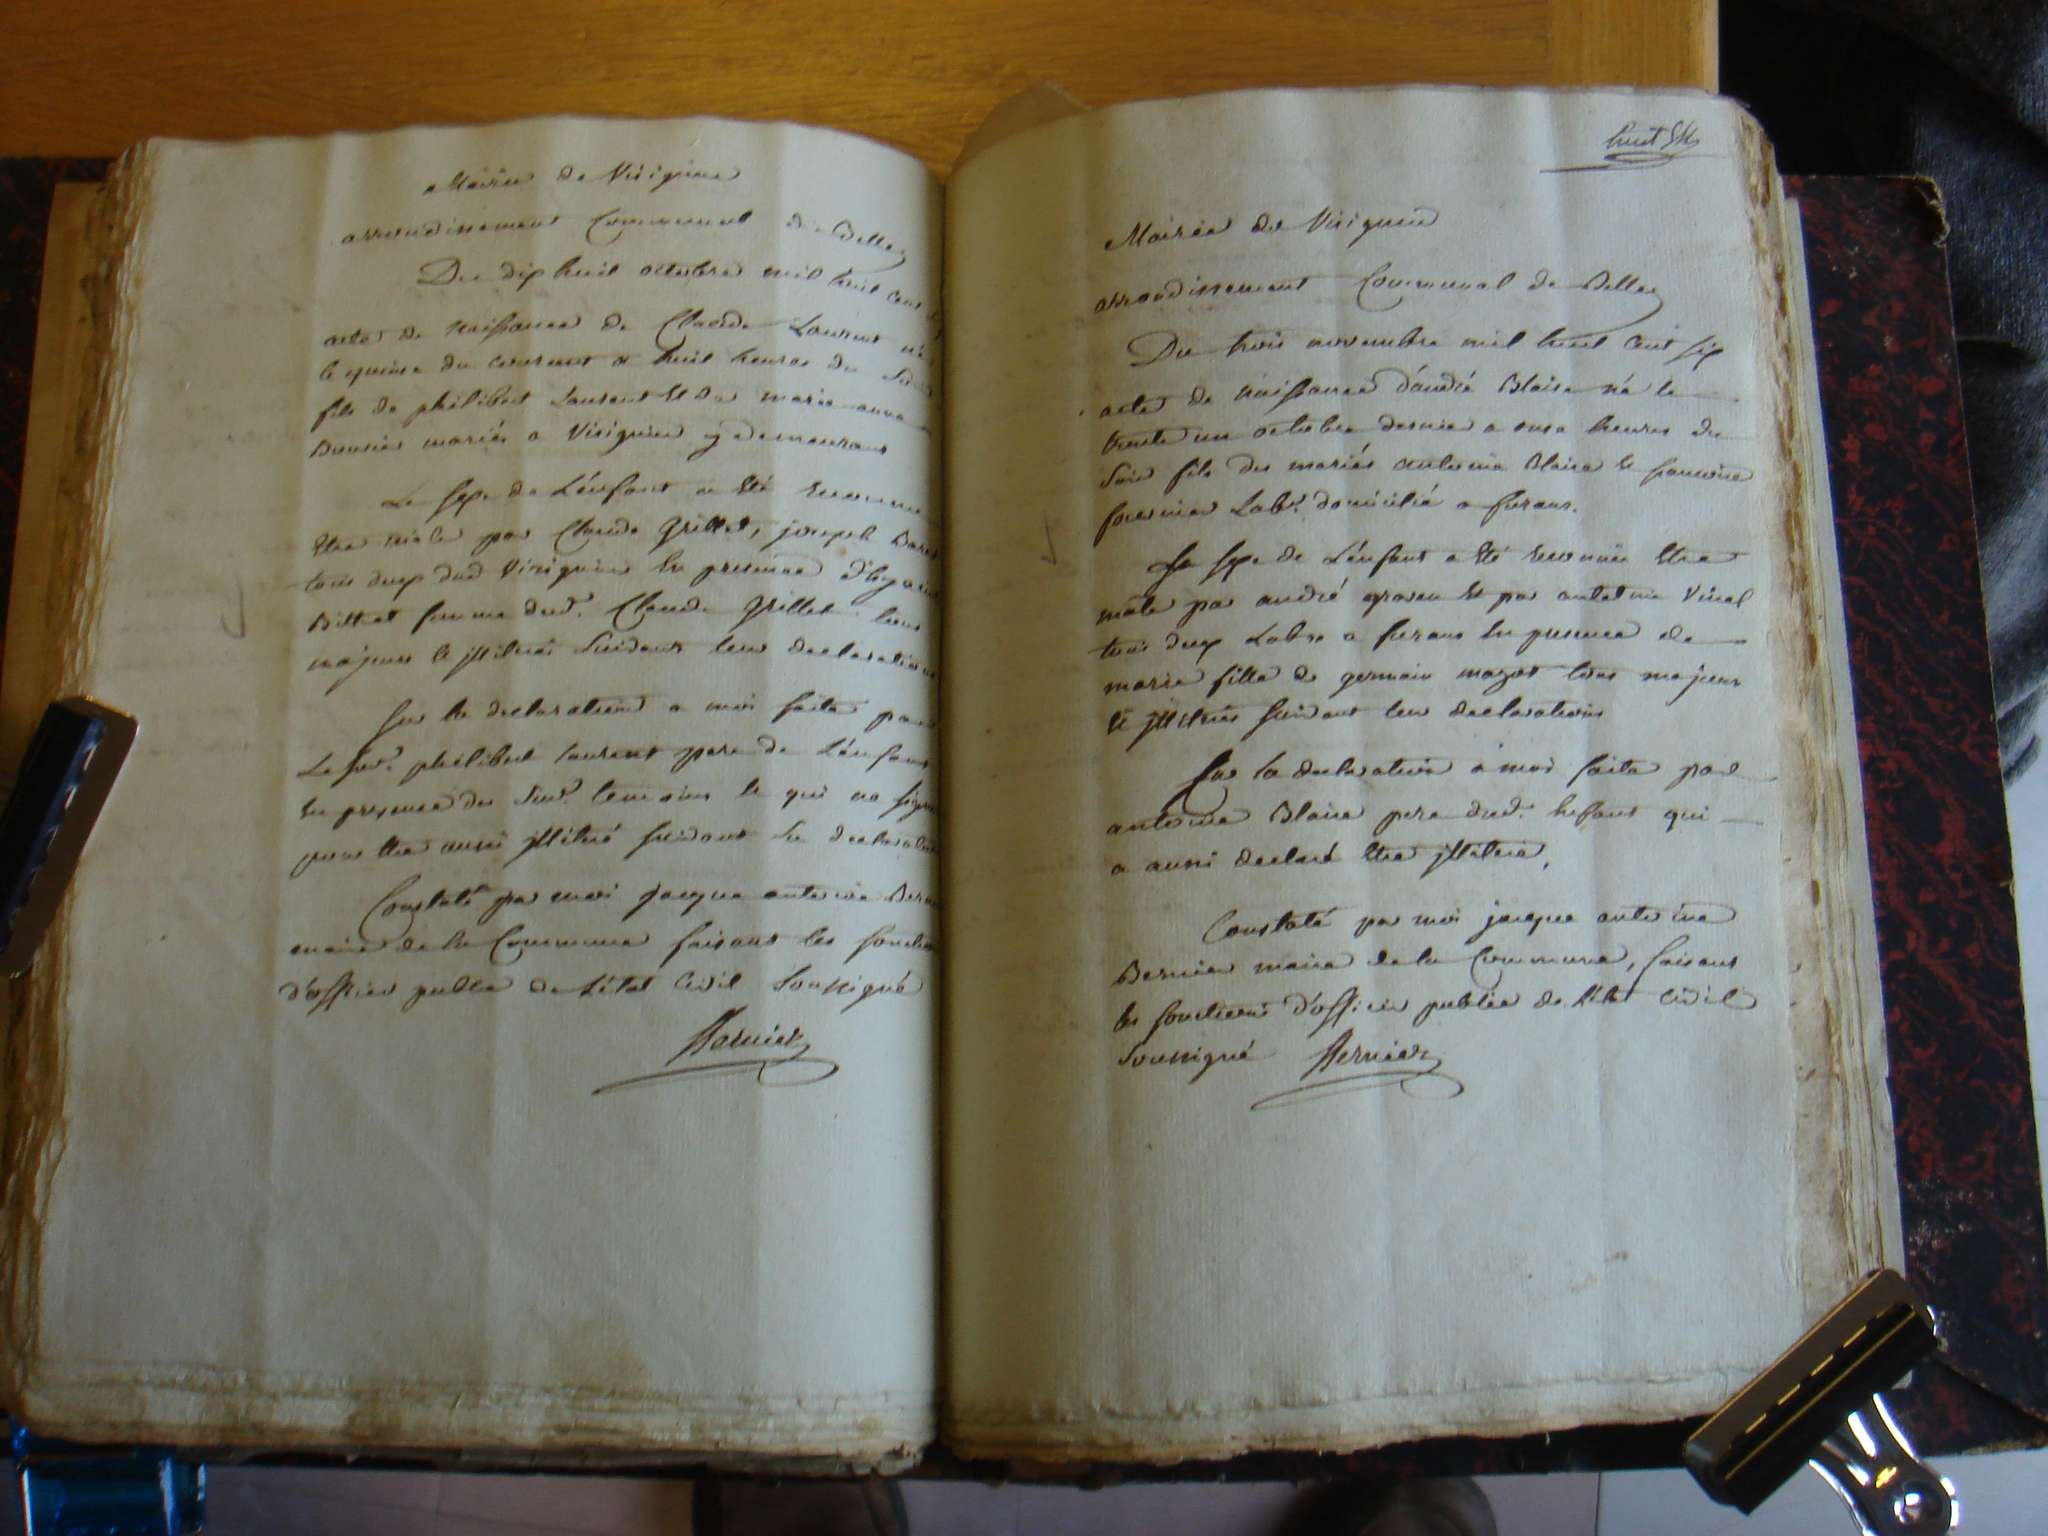 Mairie de Virignin
arrondissement Communal de Belley
Du dix huit octobre mil huit cent
acte de Naissance de Claude Laurent né
le quinze du courant a huit heures du
fils de philibert Laurent et de marie anne
mariés a Virignin y demeurans
Le sexe de L'enfant a été reconnu
être male par Claude Grillet, joseph
tous deux dud Virignin En presence
Billet femme dud. Claude Grillet tous
majeurs et illitrés suivant leur declaration
Sur la declaration a moi faite par
Le sud. philibert laurent pere de L'enfant
En presence des sud. temoins le qui na signé
pour être aussi illitré suivant sa declaration
Constaté par moi jacque antoine
maire de la Commune faisant les fonctions
d'officier public de L'état Civil Soussigné
Bernier
huit
Mairie de Virignin
arrondissement Communal de Belley
Du trois novembre mil huit cent six
acte de Naissance d'andré Blaise né le
trente un octobre dernier a onze heures du
soir fils des mariés antoine Blaise et
fournier Labr. domicilié a furans.
Le sexe de L'enfant a été reconnu être
mâle par andré et par antoine Vinel
tous deux Labrs a furans En presence de
marie fille de germain tous majeurs
et illitrés suivant leur declaration
Sur la declaration a moi faite par
antoine Blaise pere dud. Enfant qui
a aussi declaré être illitré,
Constaté par moi jacque antoine
Bernier maire de la Commune, faisant
les fonctions d'officier public de l'état Civil
Soussigné Bernier